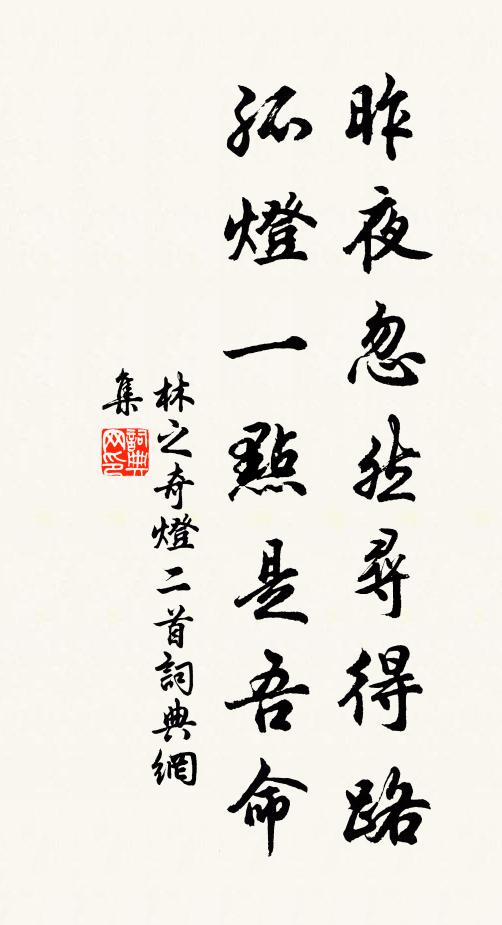 昨夜忽然尋得路
孤燈一點是吾命
林之奇燈二首詞典網
集
詞典
网印